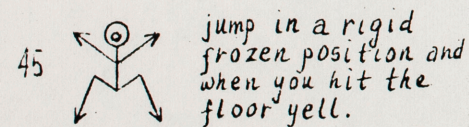 jump in a rigid
45 frozen position and
when you hit the
floor yell.